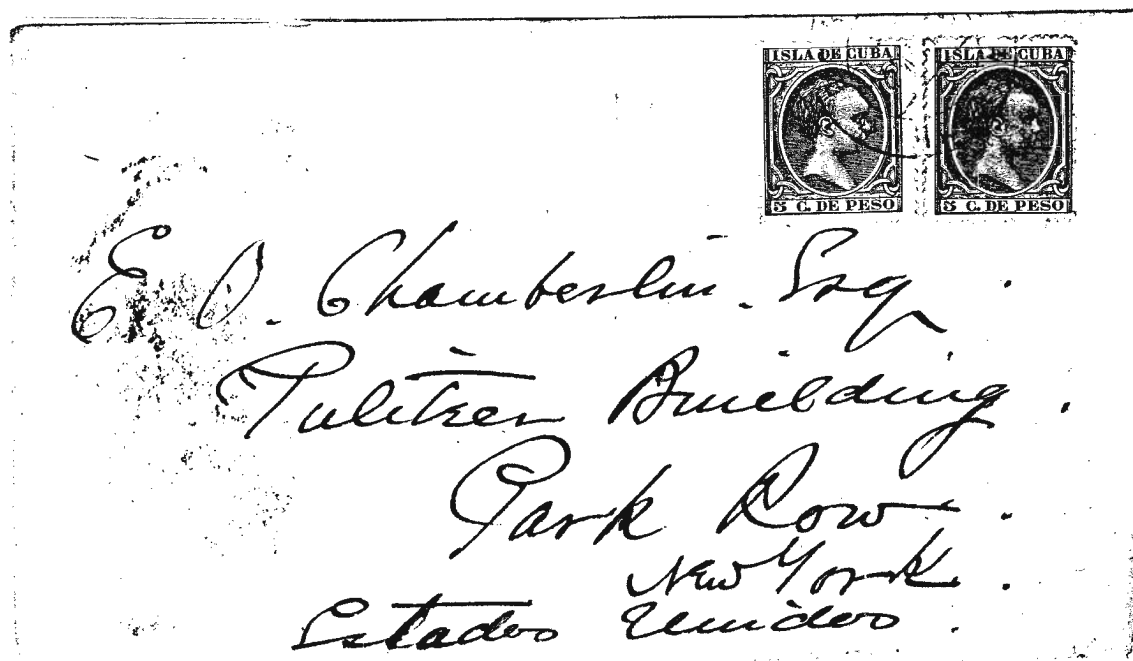 ISLA DE CUBA ISLA DE CUBA
5 C. DE PESO 5 C. DE PESO
E. O. Chamberlin. Esq.
Pulitzer Building.
Park Row.
New York.
Estados Unidos.